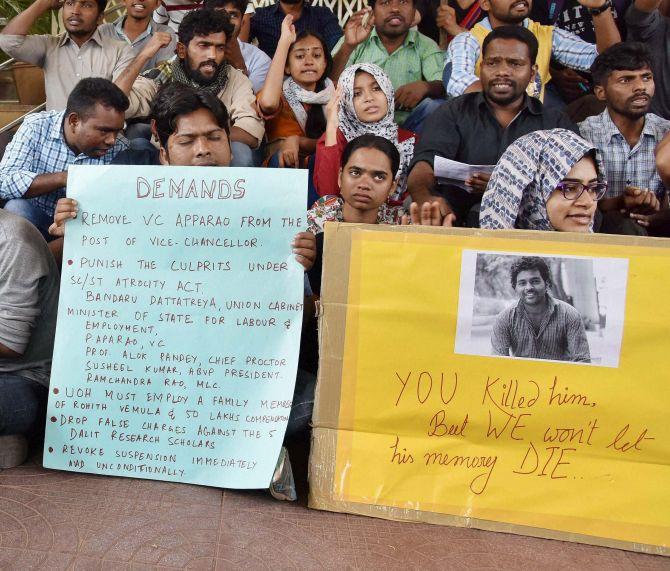 DEMANDS
REMOVE VC APPARAO FROM THE
POST OF VICE-CHANCELLOR.
• PUNISH THE CULPRITS UNDER
SC/ST ATROCITY ACT
BANDARU DATTATREYA, UNION CABINET
MINISTER OF STATE FOR LABOUR &
EMPLOYMENT.
P. APARAO, VC
PROF. ALOK PANDEY, CHIEF PROCTOR
SUSHEEL KUMAR, ABVP PRESIDENT.
RAMCHANDRA RAO, MLC.
• UOH MUST EMPLOY A FAMILY MEMBER
OF ROHITH VEMULA & 50 LAKHS COMPENSATION
• DROP FALSE CHARGES AGAINST THE 5
DALIT RESEARCH SCHOLARS
• REVOKE SUSPENSION IMMEDIATELY
AND UNCONDITIONALLY.
YOU Killed him,
But WE won't let
his memory DIE...